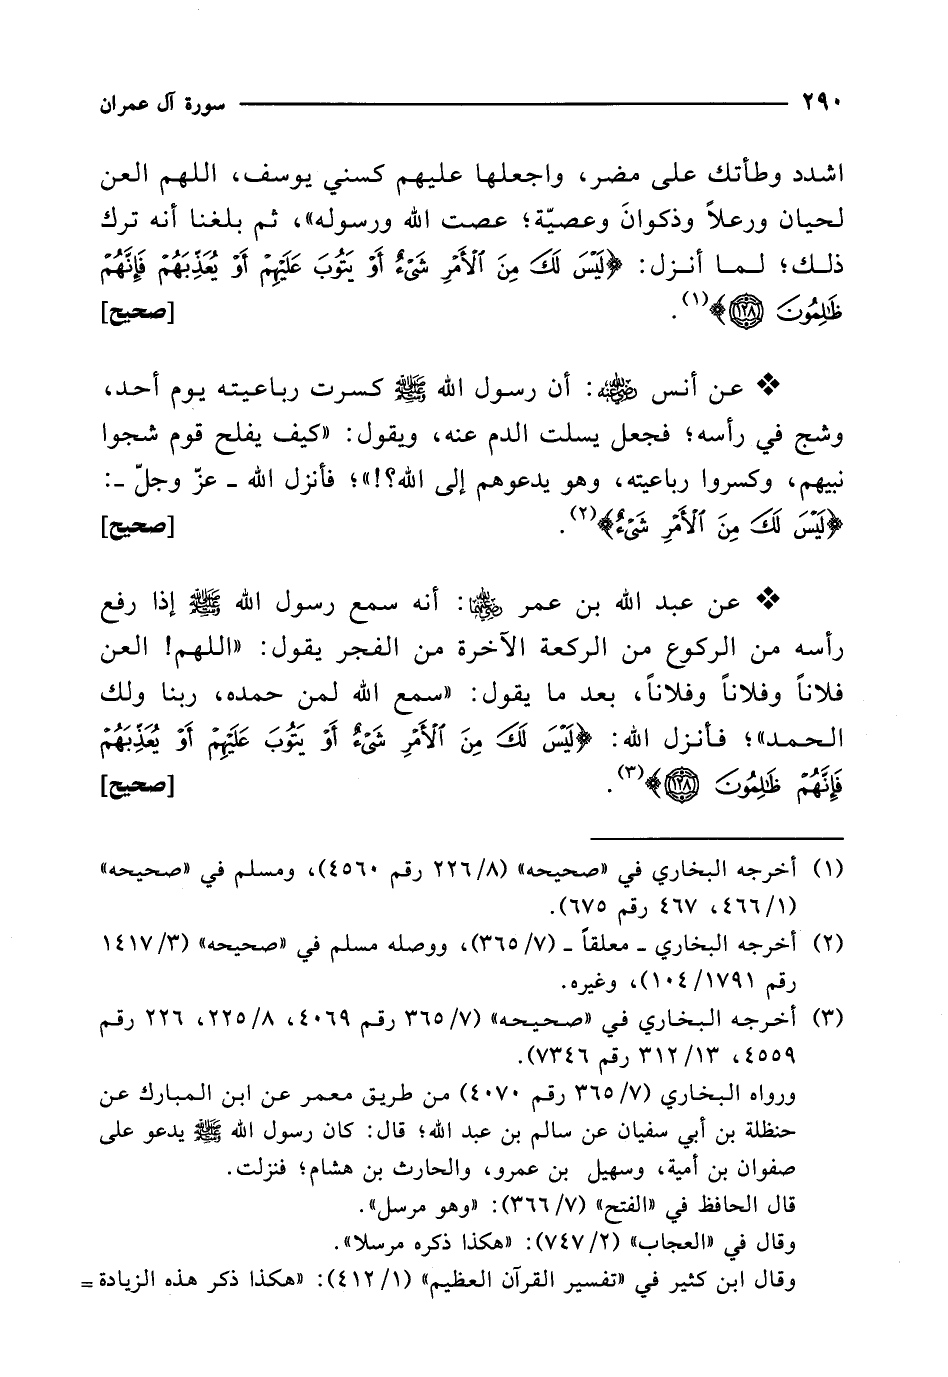 ٢٩٠ سورة آل عمران
اشدد وطأتك على مضر، واجعلها عليهم كسني يوسف، اللهم العن
لحيان ورعلاً وذكوانَ وعصيّة؛ عصت الله ورسوله»، ثم بلغنا أنه ترك
ذلك؛ لما أنزل: ﴿لَيْسَ لَكَ مِنَ ٱلْأَمْرِ شَىْءٌ أَوْ يَتُوبَ عَلَيْهِمْ أَوْ يُعَذِّبَهُمْ فَإِنَّهُمْ
ظَٰلِمُونَ ١٢٨﴾(١). [صحيح]
❖ عن أنس رضي الله عنه: أن رسول الله ﷺ كسرت رباعيته يوم أحد،
وشج في رأسه؛ فجعل يسلت الدم عنه، ويقول: «كيف يفلح قوم شجوا
نبيهم، وكسروا رباعيته، وهو يدعوهم إلى الله؟!»؛ فأنزل الله ـ عزّ وجلّ ـ:
﴿لَيْسَ لَكَ مِنَ ٱلْأَمْرِ شَىْءٌ﴾(٢). [صحيح]
❖ عن عبد الله بن عمر رضي الله عنهما: أنه سمع رسول الله ﷺ إذا رفع
رأسه من الركوع من الركعة الآخرة من الفجر يقول: «اللهم! العن
فلاناً وفلاناً وفلاناً، بعد ما يقول: «سمع الله لمن حمده، ربنا ولك
الحمد»؛ فأنزل الله: ﴿لَيْسَ لَكَ مِنَ ٱلْأَمْرِ شَىْءٌ أَوْ يَتُوبَ عَلَيْهِمْ أَوْ يُعَذِّبَهُمْ
فَإِنَّهُمْ ظَٰلِمُونَ ١٢٨﴾(٣). [صحيح]
(١) أخرجه البخاري في «صحيحه» (٨/ ٢٢٦ رقم ٤٥٦٠)، ومسلم في «صحيحه»
(١/ ٤٦٦، ٤٦٧ رقم ٦٧٥).
(٢) أخرجه البخاري ـ معلقاً ـ (٧/ ٣٦٥)، ووصله مسلم في «صحيحه» (٣/ ١٤١٧
رقم ١٧٩١/ ١٠٤)، وغيره.
(٣) أخرجه البخاري في «صحيحه» (٧/ ٣٦٥ رقم ٤٠٦٩، ٨/ ٢٢٥، ٢٢٦ رقم
٤٥٥٩، ١٣/ ٣١٢ رقم ٧٣٤٦).
ورواه البخاري (٧/ ٣٦٥ رقم ٤٠٧٠) من طريق معمر عن ابن المبارك عن
حنظلة بن أبي سفيان عن سالم بن عبد الله؛ قال: كان رسول الله ﷺ يدعو على
صفوان بن أمية، وسهيل بن عمرو، والحارث بن هشام؛ فنزلت.
قال الحافظ في «الفتح» (٧/ ٣٦٦): «وهو مرسل».
وقال في «العجاب» (٢/ ٧٤٧): «هكذا ذكره مرسلا».
وقال ابن كثير في «تفسير القرآن العظيم» (١/ ٤١٢): «هكذا ذكر هذه الزيادة =